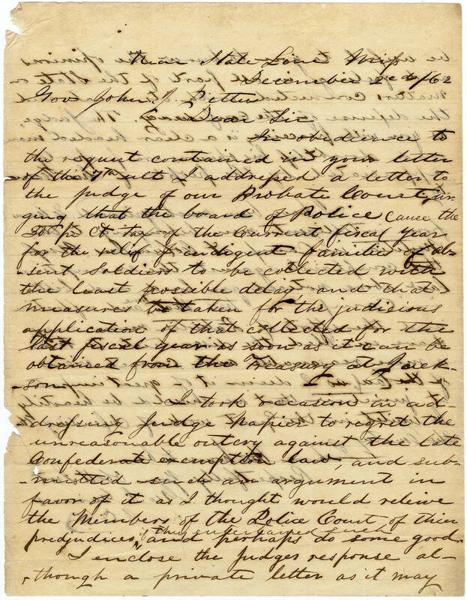 Near State Line Miss
December 2d 1862
Gov. John J Pettus
Dear Sir
In obedience to
the request contained in your letter
of the ult I addressed a letter to
the Judge of our Probate Court, ur-
ging that the board of Police cause the
50 p ct tax of the current fiscal year
for the relief of indigent families of ab-
sent soldiers to be collected with
the least possible delay and that
measures be taken for the judicious
application of that collected for the
last fiscal year as soon as it can be
obtained from the Treasury at Jack-
son
I took occasion in ad-
dressing Judge Napier to regret the
unreasonable outcry against the late
Confederate exemption law, and sub-
mitted such an argument in
favor of it as I thought would relieve
the Members of the Police Court of their
prejudices, and perhaps do some good
I enclose the Judges response al-
though a private letter as it may